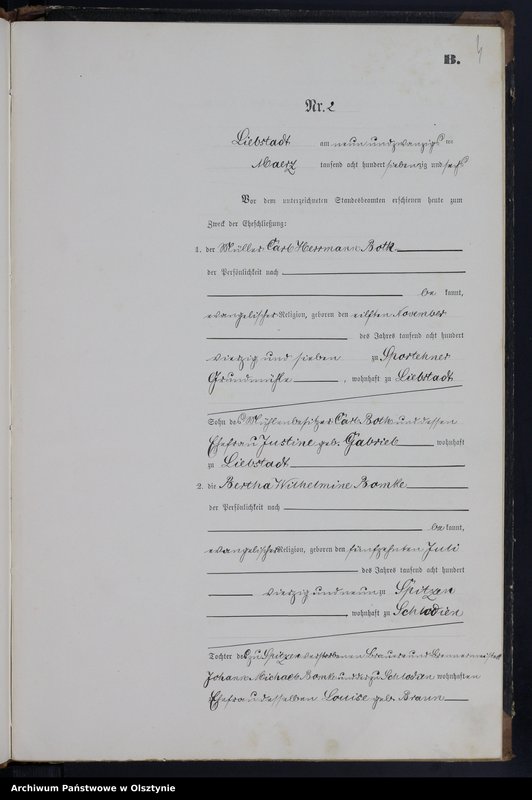 B.
Nr. 2
Liebstadt am neunundzwanzigs ten
Maerz tausend acht hundert siebenzig und sechs
Vor dem unterzeichneten Standesbeamten erschienen heute zum
Zweck der Eheschließung:
1. der Müller Carl Herrmann Bolk
der Persönlichkeit nach
be kannt,
evangelischer Religion, geboren den eilften November
des Jahres tausend acht hundert
vierzig und sieben zu Sporlehner
Grundmühle, wohnhaft zu Liebstadt
Sohn des Mühlenbesitzer Carl Bolk und dessen
Ehefrau Justine geb. Gabriel wohnhaft
zu Liebstadt
2. die Bertha Wilhelmine Bomke
der Persönlichkeit nach
be kannt,
evangelischer Religion, geboren den fünfzehnten Juli
des Jahres tausend acht hundert
vierzig und neun zu Spitzen
, wohnhaft zu Schlodien
Tochter des zu Spitzen verstorbenen Brauer und Brennermeister
Johann Michael Bomke und der zu Schlodien wohnhaften
Ehefrau desselben Louise geb. Braun
Archiwum Państwowe w Olsztynie